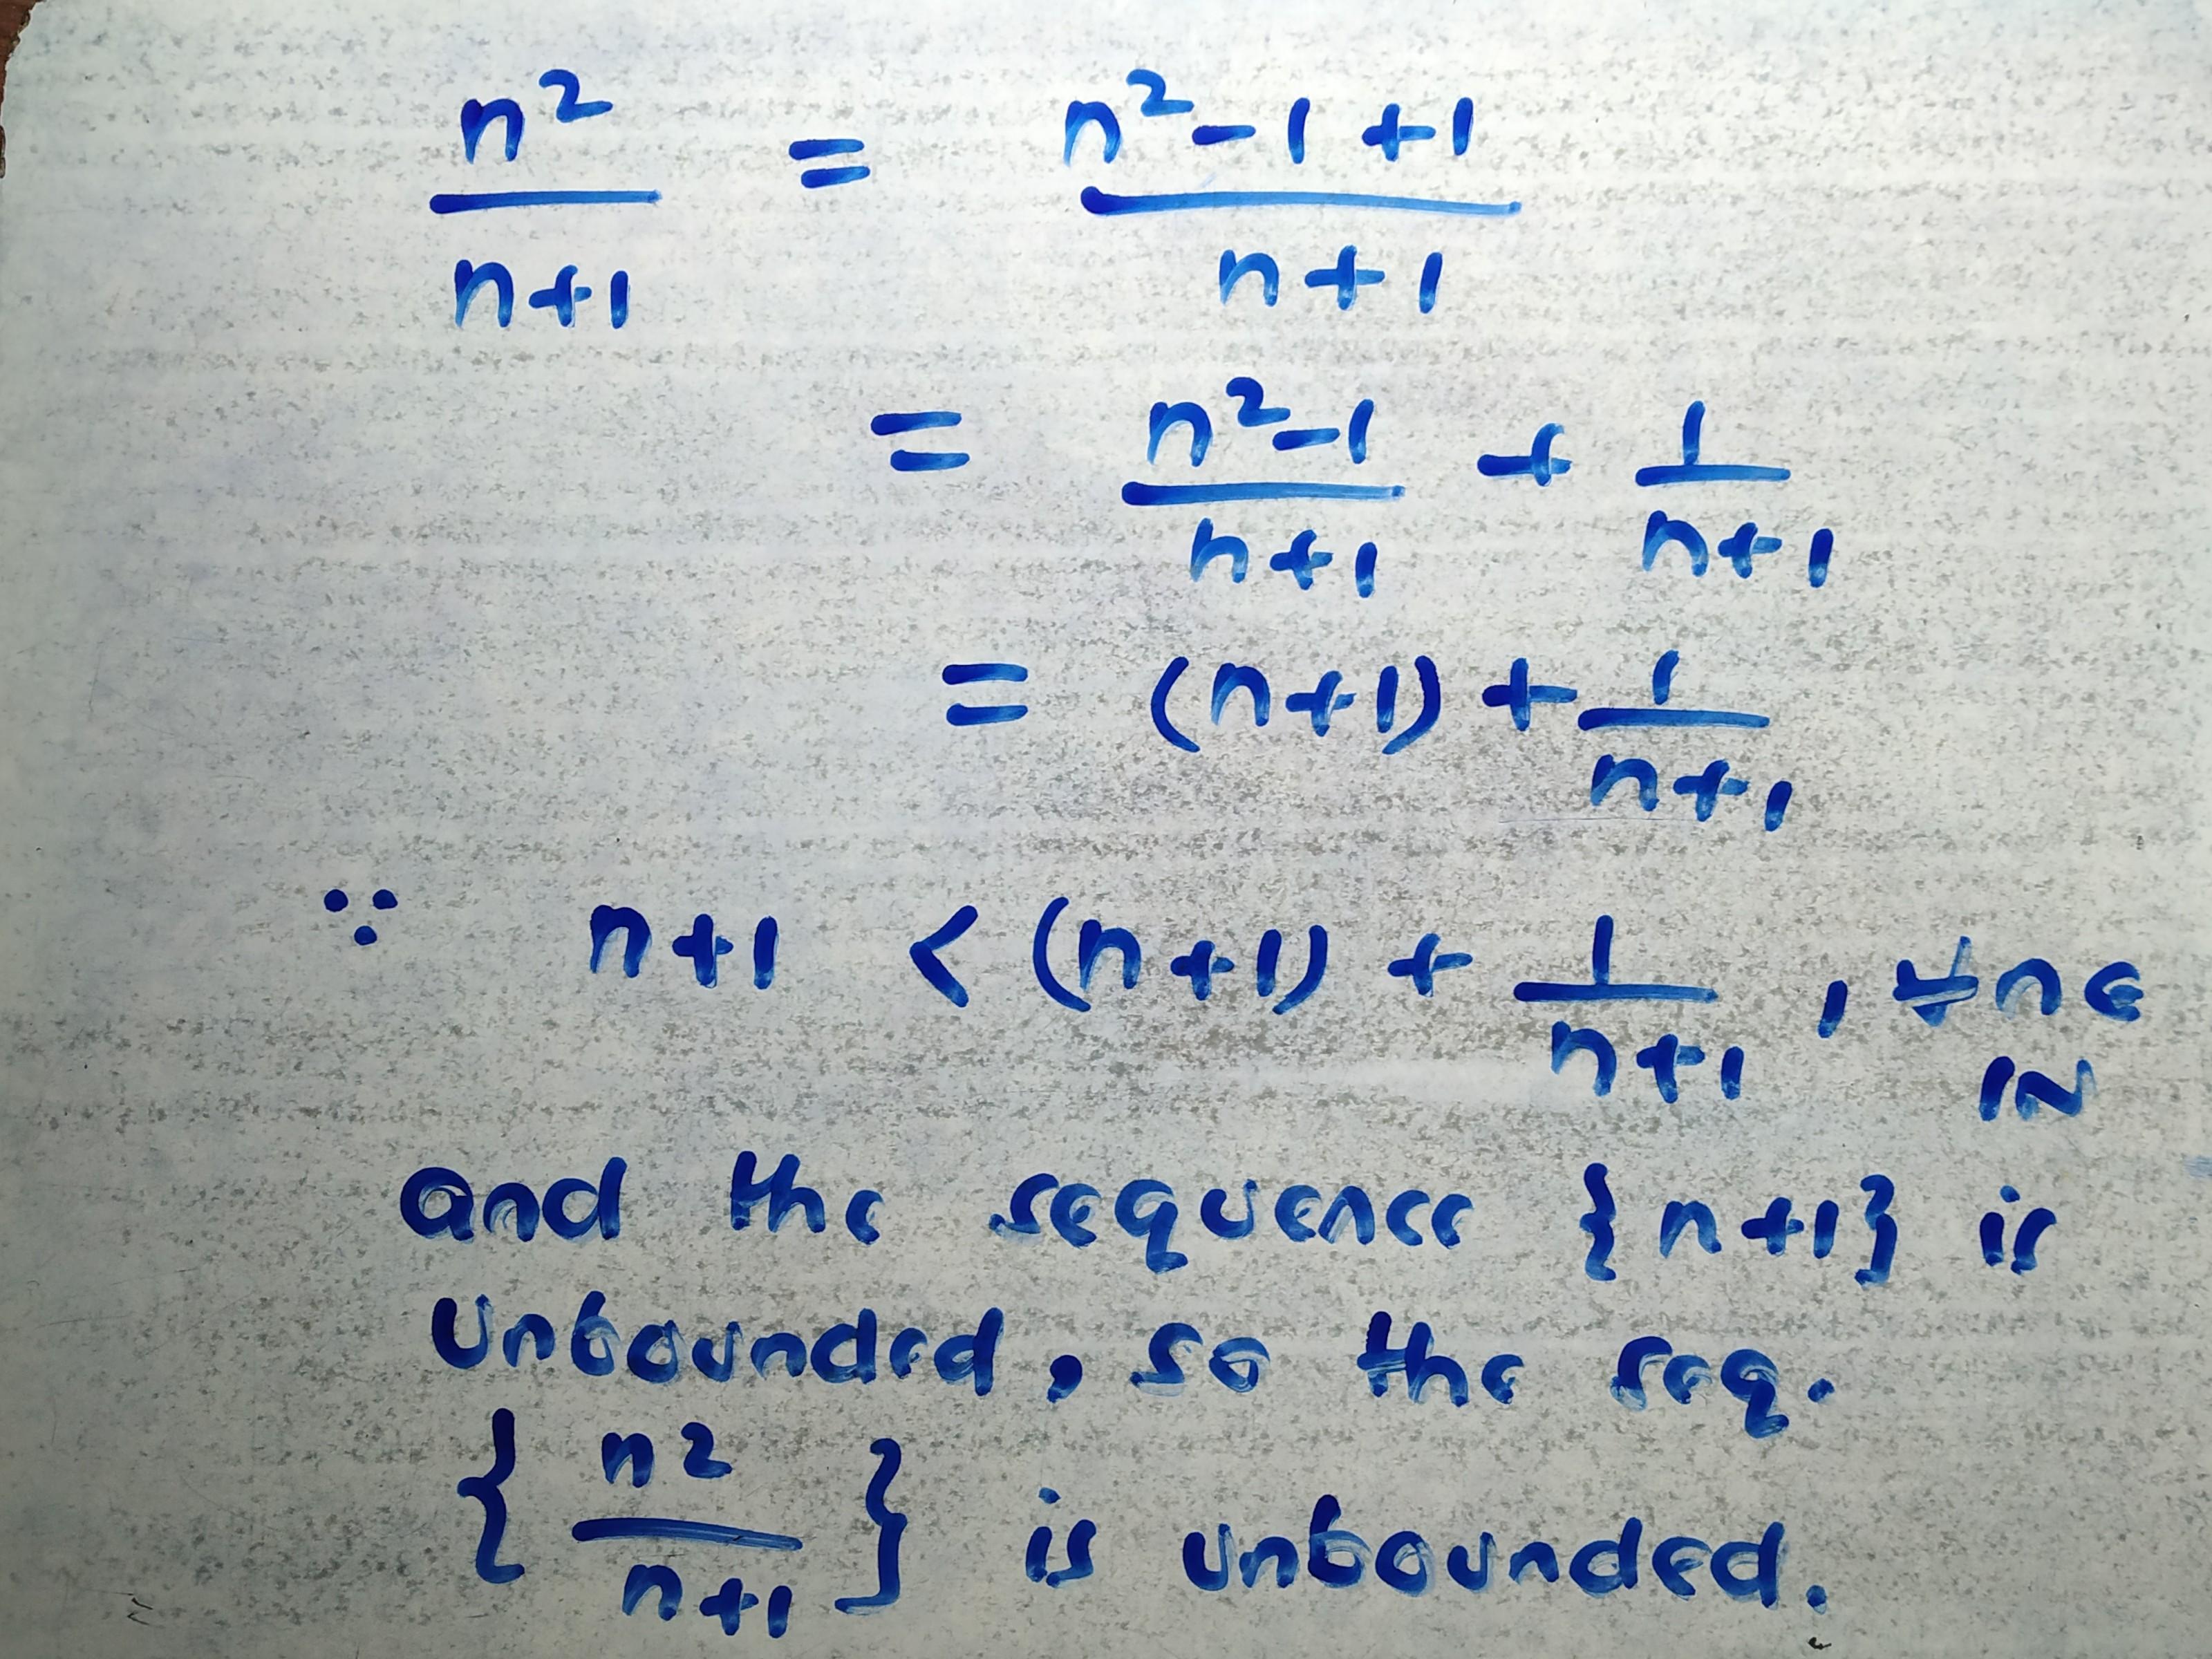 n²/(n+1) = (n²-1+1)/(n+1)
= (n²-1)/(n+1) + 1/(n+1)
= (n+1) + 1/(n+1)
∵ n+1 < (n+1) + 1/(n+1), ∀ n ∈
ℕ
and the sequence {n+1} is
Unbounded, so the seq.
{n²/(n+1)} is unbounded.